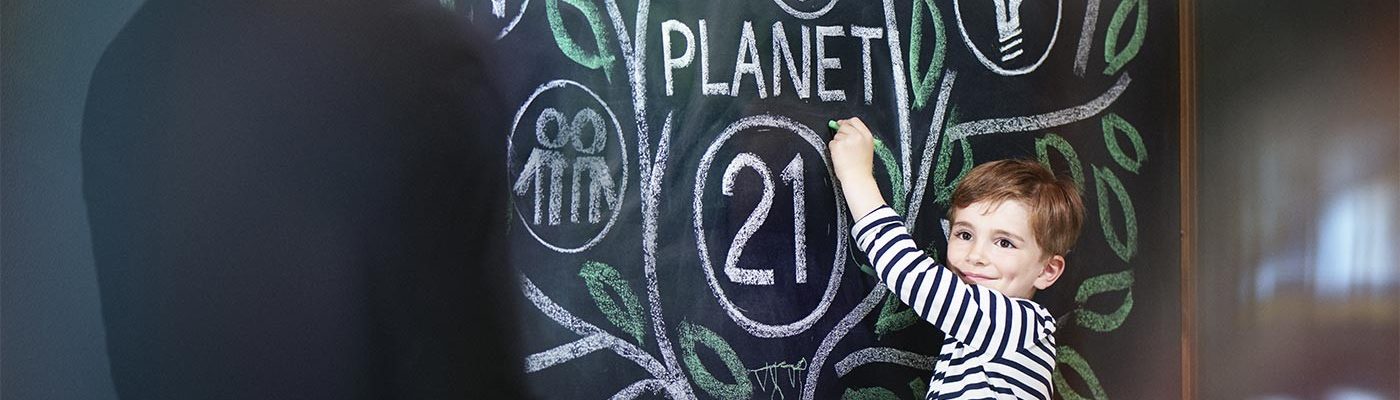 PLANET
21